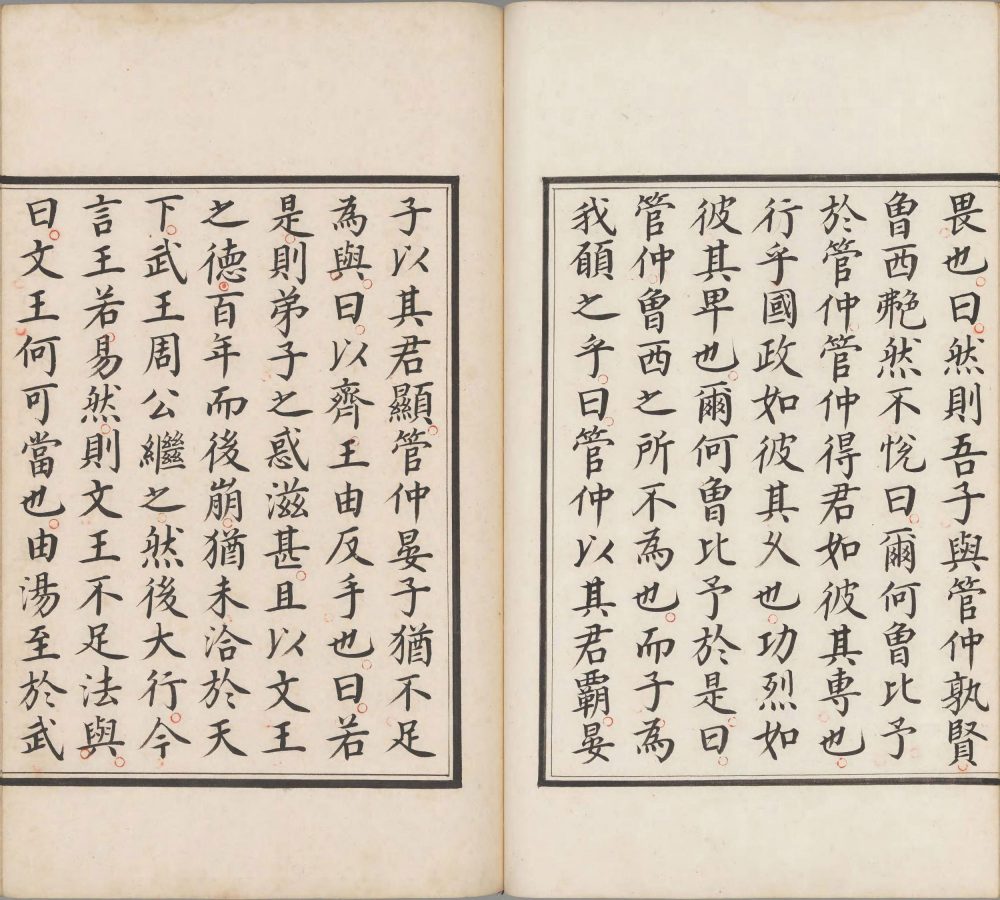 畏也曰然則吾子與管仲孰賢
曾西艴然不悅曰爾何曾比予
於管仲管仲得君如彼其專也
行乎國政如彼其久也功烈如
彼其卑也爾何曾比予於是曰
管仲曾西之所不為也而子為
我願之乎曰管仲以其君霸晏
子以其君顯管仲晏子猶不足
為與曰以齊王由反手也曰若
是則弟子之惑滋甚且以文王
之德百年而後崩猶未洽於天
下武王周公繼之然後大行今
言王若易然則文王不足法與
曰文王何可當也由湯至於武